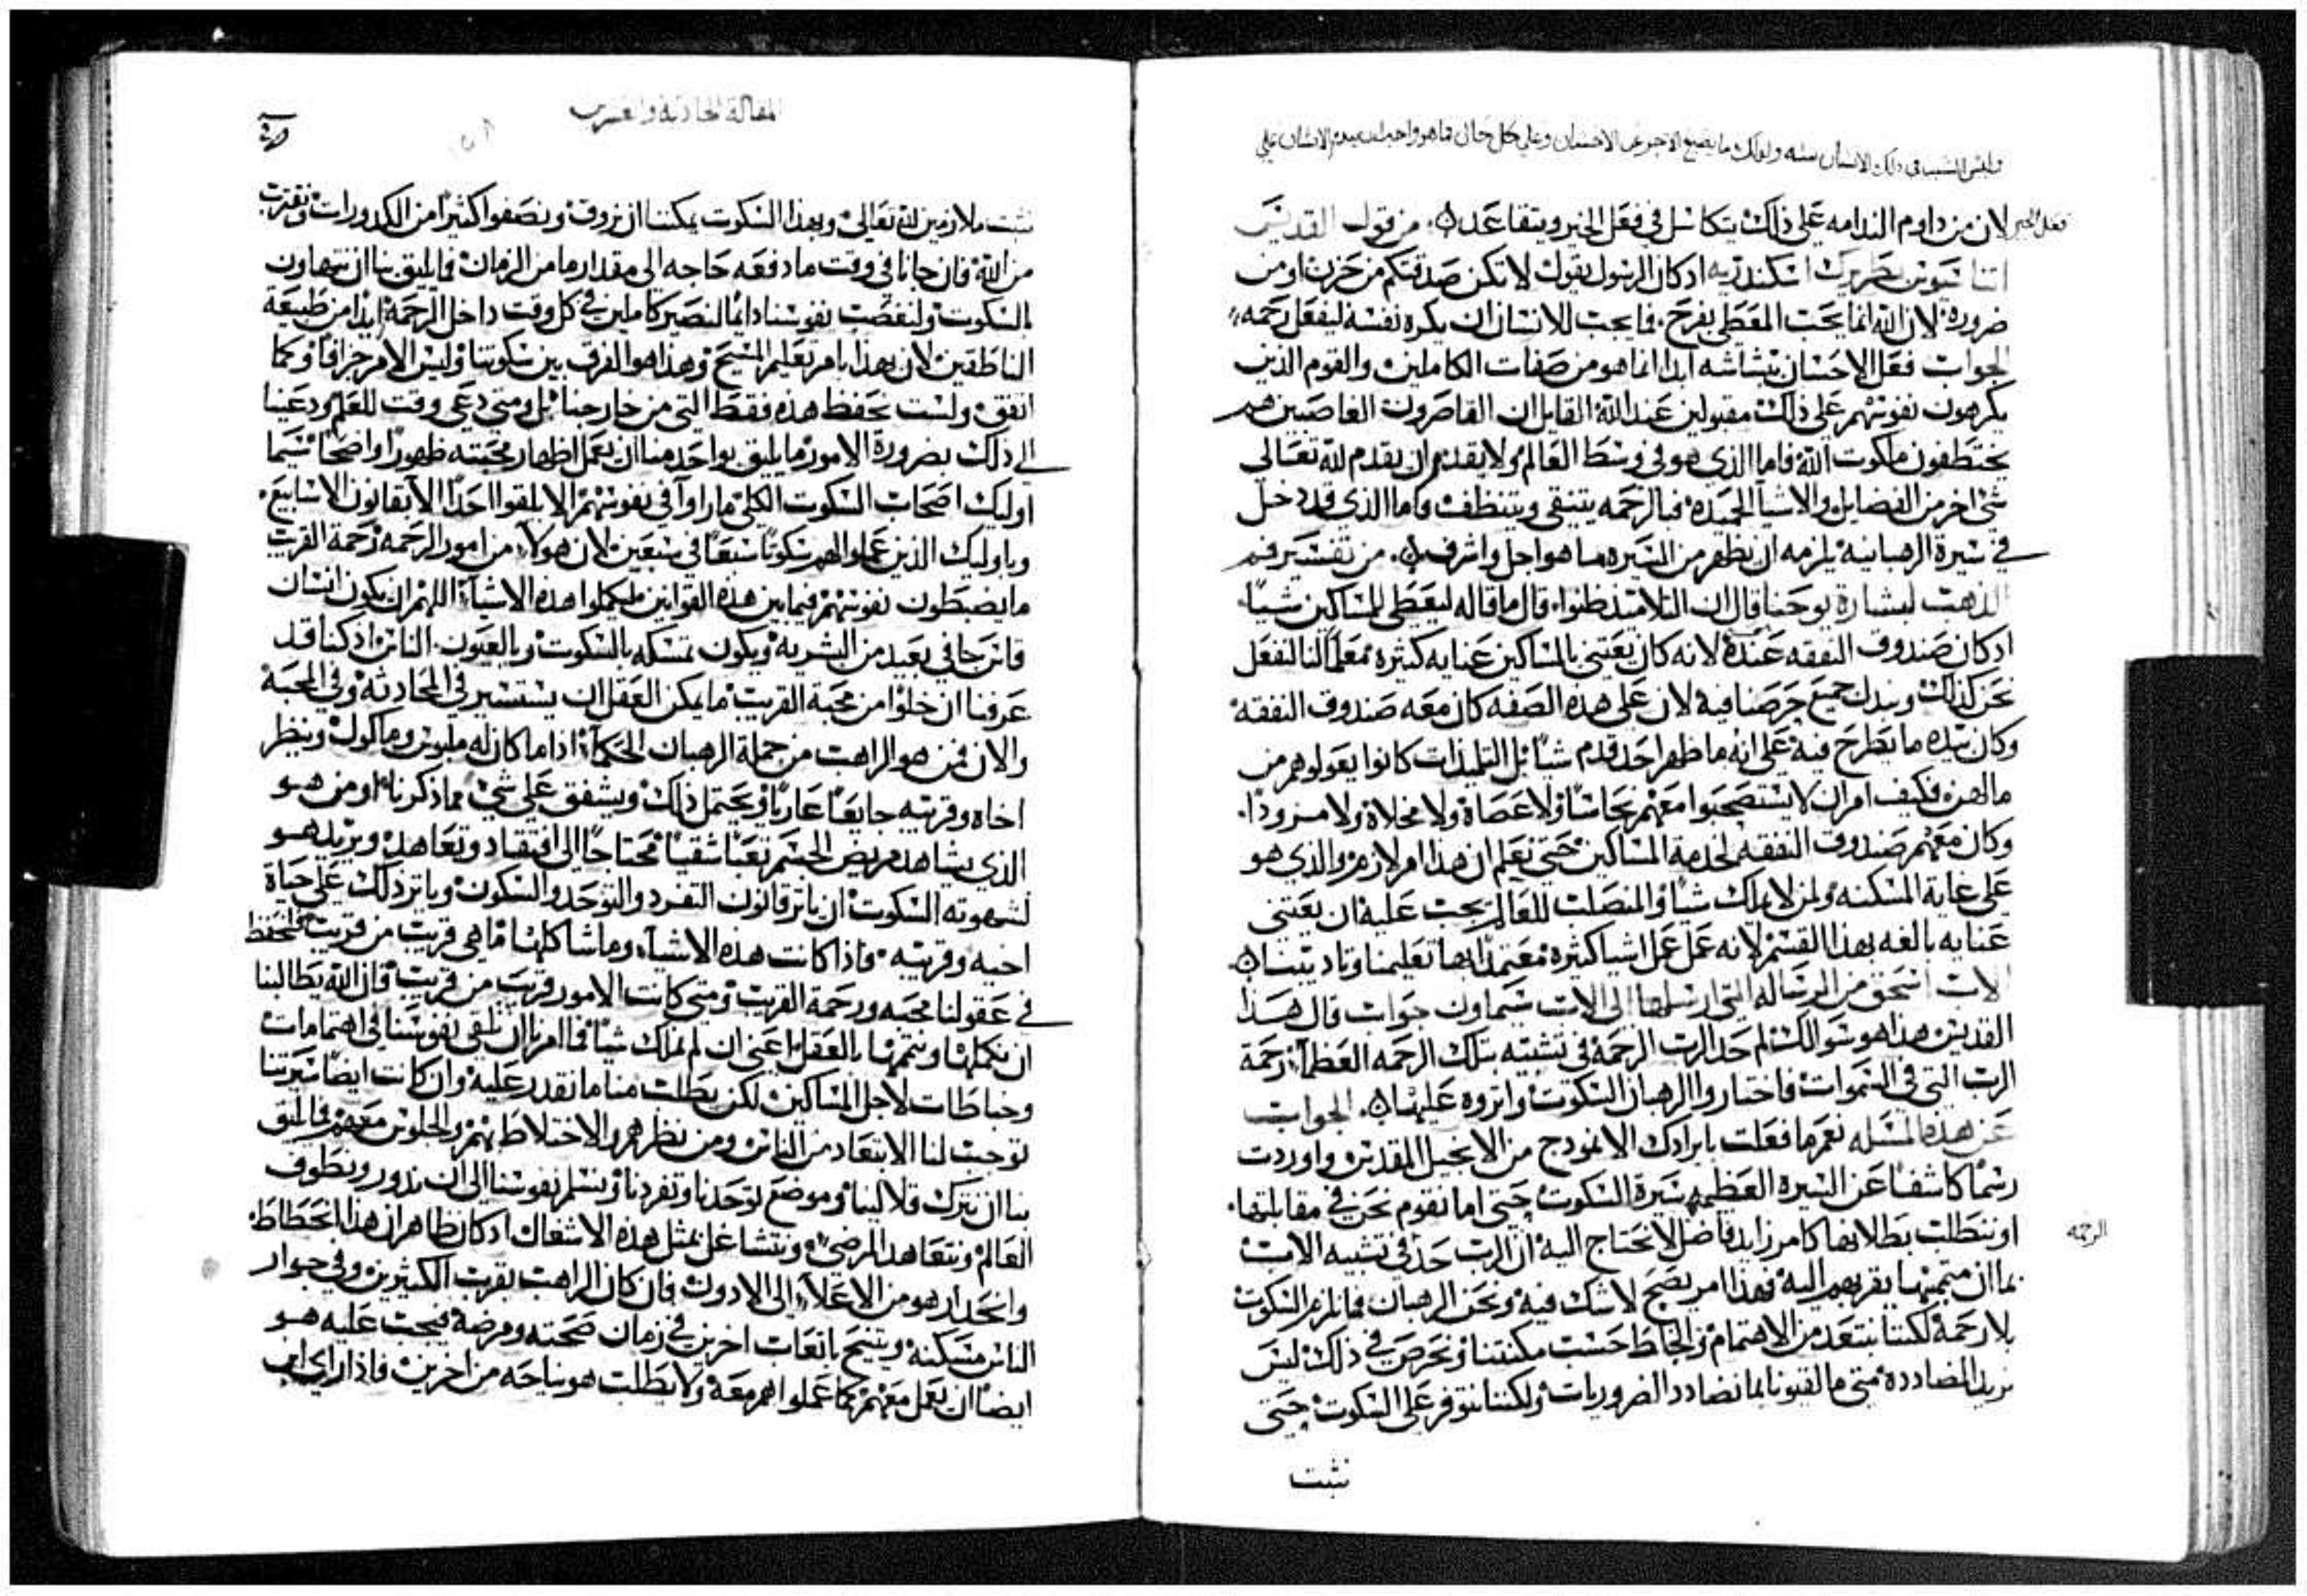 وليس السبب في ذلك الانسان منه ولذلك ما يضيع الاجر عن الاحسان وعلى كل حال فما هو واجب ان يندم الانسان على
فعل الخير لان من داوم الندامه على ذلك يتكاسل في فعل الخير ويتقاعد من قول القديس
اتناسيوس بطريرك اسكندريه اد كان الرسول يقول لا تكن صدقتكم من حزن او من
ضروره لان الله انما يحب المعطي بفرح فايجب للانسان ان يكره نفسه ليفعل رحمه
الجواب فعل الاحسان ببشاشه ابدا انما هو من صفات الكاملين والقوم الذين
يكرهون نفوسهم على ذلك مقبولين عند الله القايل ان القاصرون الغاصبين هم
يختطفون ملكوت الله فاما الذي هو في وسط العالم ولا يقدر ان يقدم لله تعالى
شي اخر من الفضايل والاشيا الحميده فبالرحمه يتنقى ويتنظف واما الذي قد دخل
في سيرة الرهبانيه يلزمه ان يظهر من السيره ما هو اجل واشرف من تفسير فم
الذهب لبشارة يوحنا قال ان التلاميذ ظنوا قال ما قاله ليعطى للمساكين شيا
اد كان صندوق النفقه عنده لانه كان يعتني بالمساكين عنايه كثيره معلما لنا لنفعل
نحن كذلك ونبدل جميع حرصنا فيه لان على هذه الصفه كان معه صندوق النفقه
وكان بيده ما يطرح فيه على انه ما ظهر احد قدم شيا بل التلميذات كانوا يعولوهم من
مالهن فكيف امر ان لا يستصحبوا معهم نحاسا ولا عصاة ولا مخلاة ولا مزودا
وكان معهم صندوق النفقه لخدمة المساكين حتى نعلم ان هذا امر لازم والذي هو
على غاية المسكنه ولمن لا يملك شيا والمنصلب للعالم يجب عليه ان يعتني
عنايه بالغه بهذا القسم لانه عمل عمل اشيا كثيره معتمدا بها تعليمنا وتاديبنا
الاب اسحق من الرساله التي ارسلها الى الاب سيماون جواب قال هذا
القديس هذا هو سوالك لم حد الرب الرحمه في تشبيه بتلك الرحمه العظما رحمة
الرب التي في السموات فاختاروا الرهبان السكوت واثروه عليها الجواب
عن هذه المسله نعم ما فعلت بايرادك الانموذج من الانجيل المقدس واوردت
رسما كاشفا عن السيره العظيمه سيرة السكوت حتى اما نقوم نحن في مقابلتها
او نتطلب بطلانها كامر زايد فاضل لا نحتاج اليه ان الرب حد في تشبيه الاب
الرحمه
بما ان متممها يقربهم اليه فهذا امر يصح لا شك فيه ونحن الرهبان فما نلزم السكوت
بلا رحمه لكننا نبتعد من الاهتمام والخباط حسب مكنتنا ونحرص في ذلك ليس
نريد المضادده متى ما لقيونا بما نضادد الضروريات ولكننا نتوفر على السكوت حتى
نثبت
المقالة الحادية والعشرين
نثبت ملازمين لله تعالى وبهذا السكوت يمكننا ان نروق ونصفوا كثيرا من الكدورات ونقترب
من الله فان جانا في وقت ما دفعه حاجه الى مقدار ما من الزمان فما يليق بنا ان نتهاون
بالسكوت ولنغصب نفوسنا دايما لنصير كاملين في كل وقت داخل الرحمه ابدا من طبيعة
الناطقين لان بهذا يامر تعليم المسيح وهذا هو الفرق بين سكوتنا وليس الامر جزافا وكما
اتفق ولست نحفظ هذه فقط التي من خارجنا بل ومتى دعى وقت للعلم ودعينا
الى ذلك بضرورة الامور ما يليق بواحد منا ان يعمل اظهار محبته ظهورا واضحا سيما
اوليك اصحاب السكوت الكلي ما راوا في نفوسهم الا يلقوا احدا الا بقانون الاسابيع
وباوليك الذين عملوا لهم سكوتا سبعا في سبعين لان هولا من امور الرحمه رحمة القريب
ما يضبطون نفوسهم فيما بين هذه القوانين ليكملوا هذه الاشيا اللهم ان يكون انسان
قاس جافي بعيد من البشريه ويكون تمسكه بالسكوت وبالعيون الناس اد كنا قد
عرفنا ان خلوا من محبة القريب ما يمكن العقل ان يستسير في المحادثه وفي المحبة
والان فمن هو الراهب من جملة الرهبان الحكما اذا ما كان له ملبوس وماكول وينظر
اخاه وقريبه جايعا عاريا ويحتمل ذلك ويشفق على شي مما ذكرنا او من هو
الذي يشاهد مريض الجسم تعبا شقيا محتاجا الى افتقاد وتعاهد ويريد هو
لشهوته السكوت ان ياثر قانون التفرد والتوحد والسكون وياثر ذلك على حياة
اخيه وقريبه فاذا كانت هذه الاشيا وما شاكلها ما هي قريب من قريب فلنحفظ
في عقولنا محبه ورحمة القريب ومتى كانت الامور قريب من قريب فان الله يطالبنا
ان نكملها ونتممها بالعقل اعني ان لم نملك شيا فما امرنا ان نلقي نفوسنا في اهتمامات
وخباطات لاجل المساكين لكن يطلب منا ما نقدر عليه وان كانت ايضا سيرتنا
توجب لنا الابتعاد من الناس ومن نظرهم والاختلاط بهم والجلوس معهم فما يليق
بنا ان نترك قلالينا وموضع توحدنا وتفردنا ونسلم نفوسنا الى ان ندور ونطوف
العالم ونتعاهد المرضى ونتشاغل بمثل هذه الاشغال اد كان ظاهر ان هذا انحطاط
وانحدار هو من الاعلا الى الادون فان كان الراهب بقرب الكثيرين وفي جوار
الناس مسكنه ويتنيح باتعاب اخرين في زمان صحته ومرضه فيجب عليه هو
ايضا ان يعمل معهم كما عملوا هم معه ولا يطلب هو نياحه من اخرين فاذا راى ابن